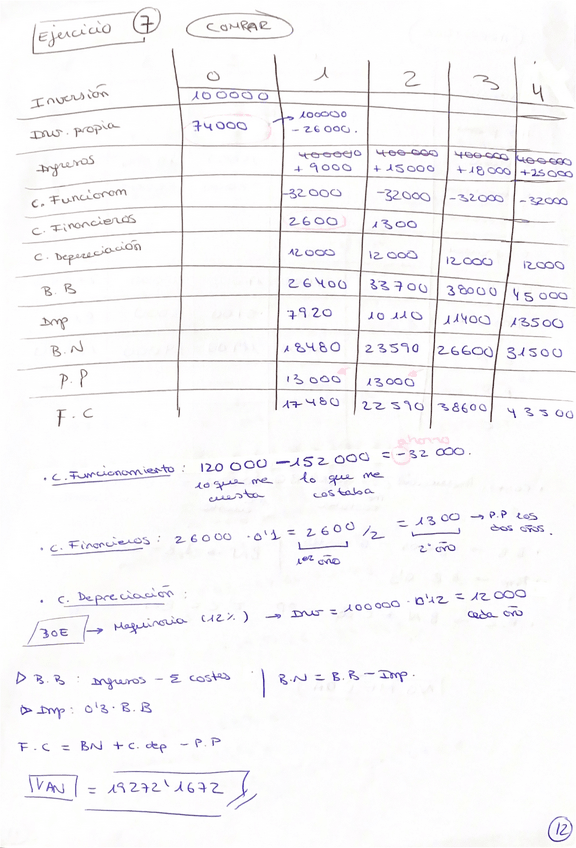 Ejercicio 7 COMPRAR
0 1 2 3 4
Inversión 100000
Inv. propia 74000 → 100000
- 26000.
Ingresos 400000 400000 400000 400000
+ 9000 + 15000 + 18000 + 25000
C. Funcionam -32000 -32000 -32000 -32000
C. Financieros 2600 1300
C. Depreciación 12000 12000 12000 12000
B.B 26400 33700 38000 45000
Imp 7920 10110 11400 13500
B.N 18480 23590 26600 31500
P.P 13000 13000
F.C 17480 22590 38600 43500
ahorro
· C. Funcionamiento : 120 000 - 152 000 = - 32 000.
lo que me lo que me
cuesta costaba
· C. Financieros : 26000 · 0'1 = 2600 /2 = 1300 → P.P los
dos años.
1er año 2º año
· C. Depreciación :
BOE → Maquinaria (12%) → Inv = 100000 · 0'12 = 12000
cada año
▷ B.B : Ingresos - Σ costes | B.N = B.B - Imp.
▷ Imp: 0'3 · B.B
F.C = BN + C. dep - P.P
VAN = 19272'1672
12